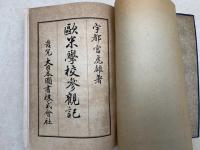 宇都宮鹿雄著
歐米學校參觀記
發兌 大日本圖書株式會社